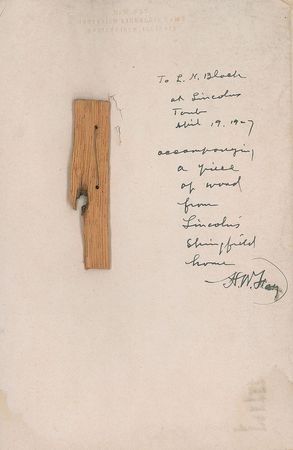 To L. H. Block
at Lincolns
Tomb
April 19. 1927
accompanying
a piece
of wood
from
Lincoln's
Springfield
home
H. W. Fay